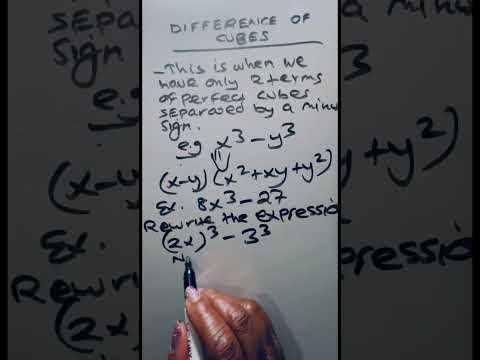 DIFFERENCE OF
CUBES
- This is when we
have only 2 terms
of perfect cubes
separated by a minus
sign.
e.g x³ - y³
(x-y)(x²+xy+y²)
Ex. 8x³ - 27
Rewrite the expression
(2x)³ - 3³